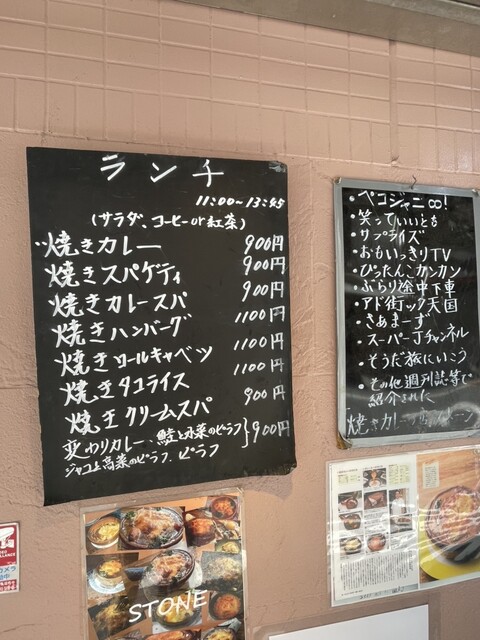 ランチ
11:00~13:45
(サラダ、コーヒーor紅茶)
焼きカレー 900円
焼きスパゲティ 900円
焼きカレースパ 900円
焼きハンバーグ 1100円
焼きロールキャベツ 1100円
焼きタコライス 1100円
焼きクリームスパ 900円
変わりカレー、鮭と水菜のピラフ
ジャコと高菜のピラフ、ピラフ
}900円
・ペコジャニ∞!
・笑っていいとも
・サプライズ
・おもいっきりTV
・ぴったんこカンカン
・ぶらり途中下車
・アド街ック天国
・さあまーず
・スーパーJチャンネル
・そうだ旅にいこう
・その他週刊誌等で
紹介された
焼きカレー
STONE